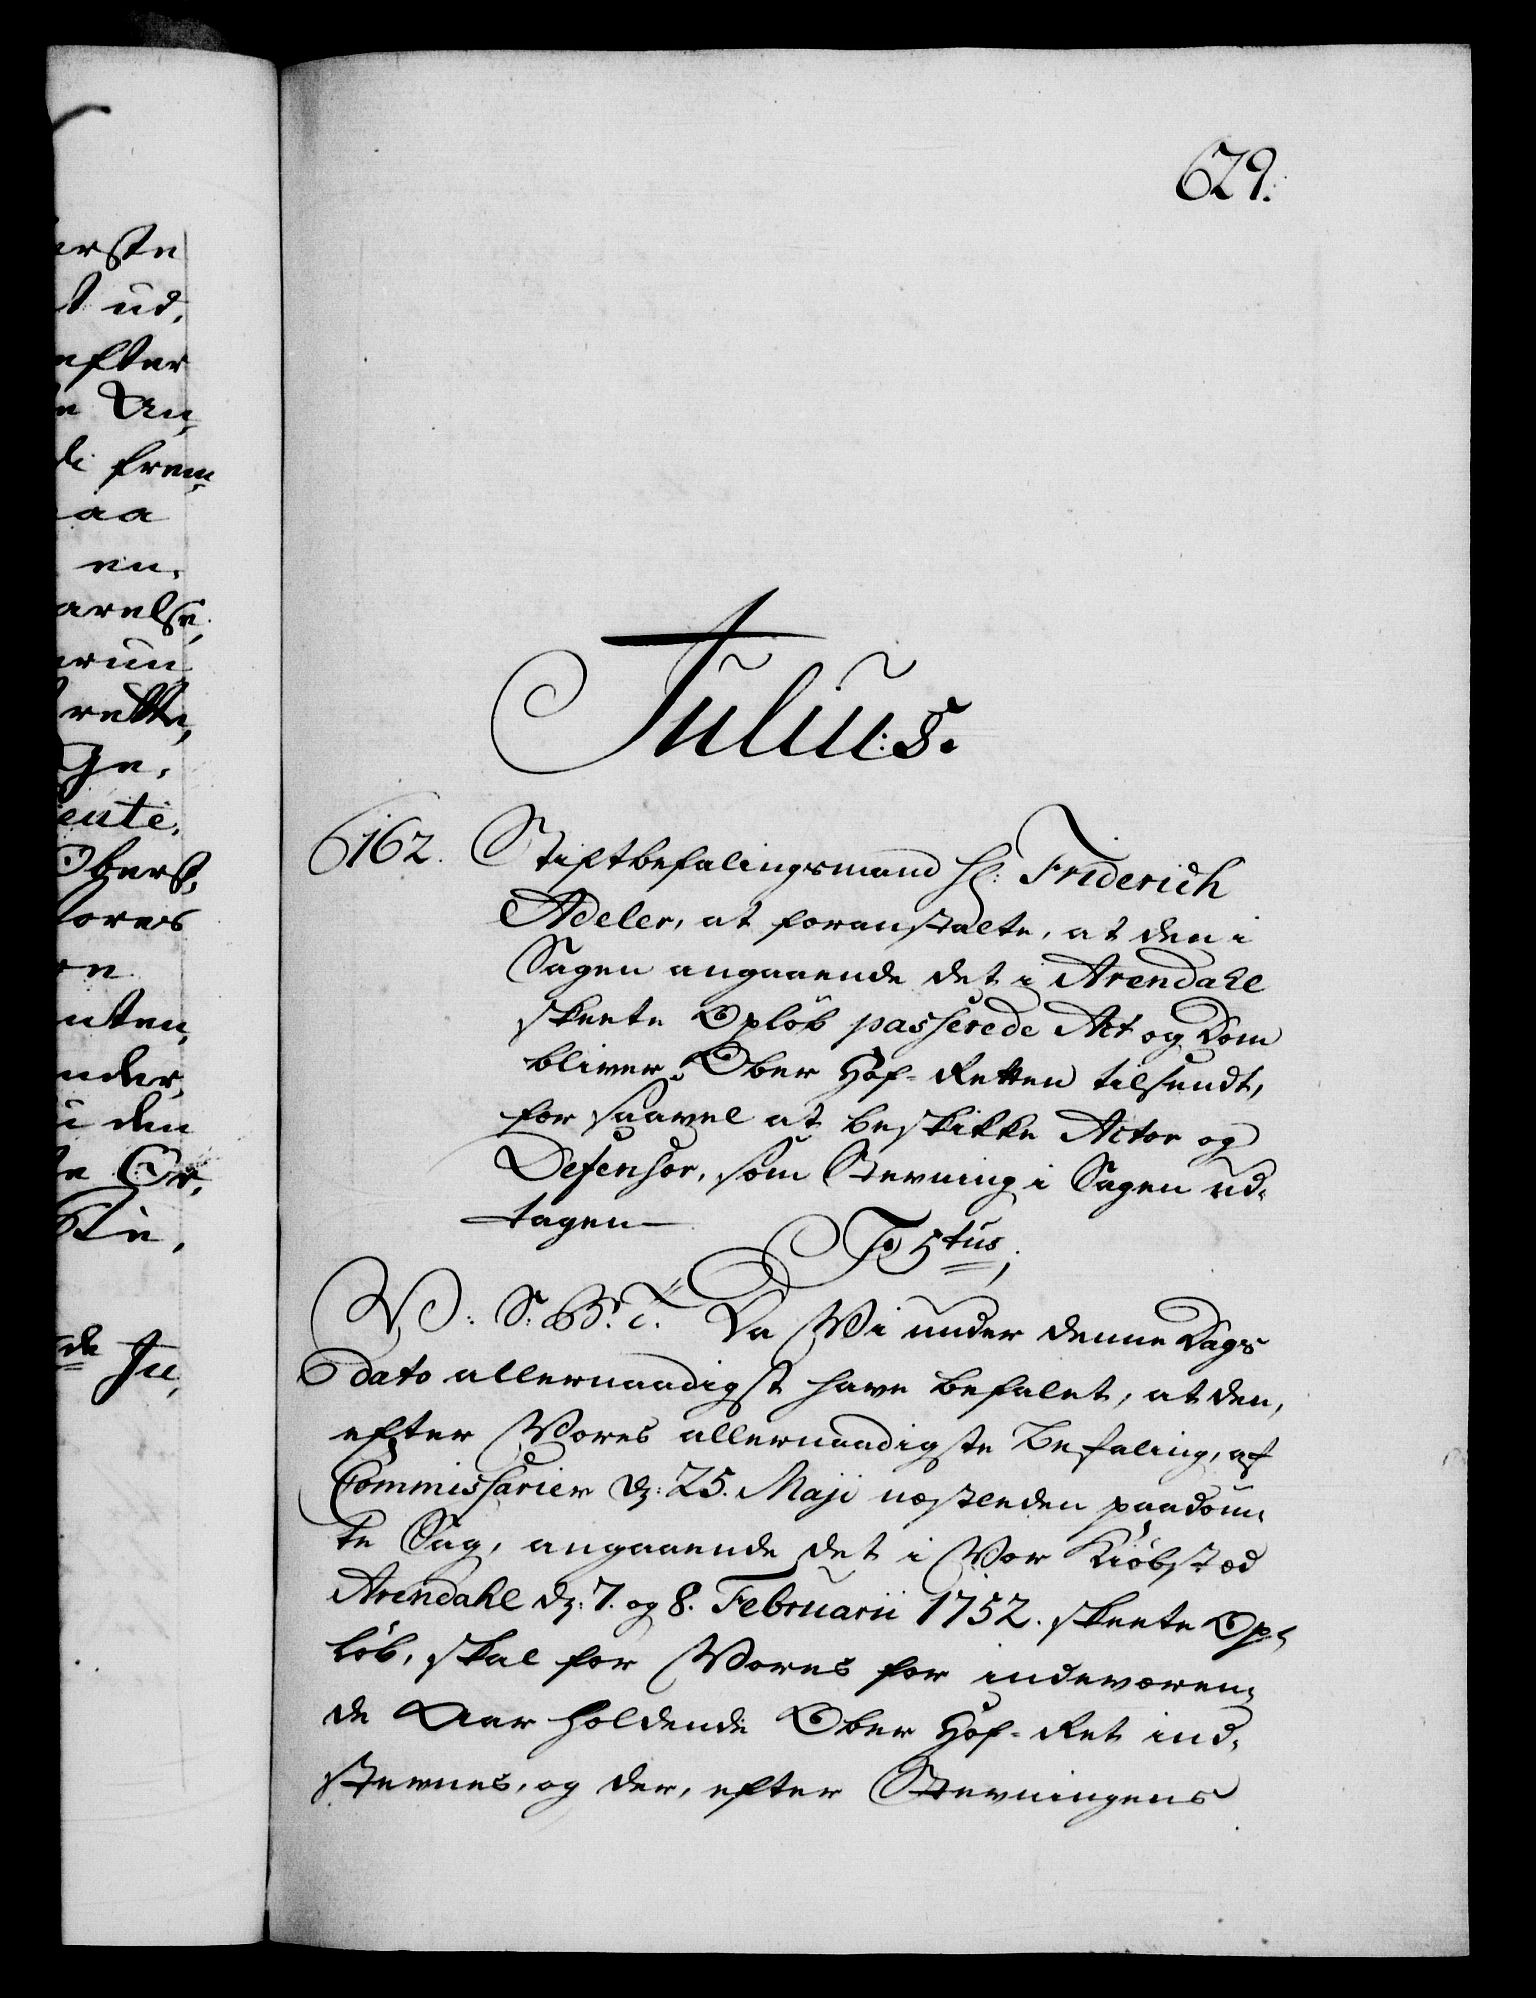 629.
Julius.
6162. Stiftbefalingsmand Hl: Friderich
Adeler, at foranstalte, at den i
Sagen angaaende det i Arendahl
skeete Opløb passerede Act og Dom
bliver Ober Hof-Retten tilsendt,
for saavel at beskikke Actor og
Defensor, som Stevning i Sagen ud-
tagen
5tus
V: S: B: T: Da Vi under denne Dags
dato allernaadigst have befalet, at den,
efter Vores allernaadigste Befaling, af
Commissarier d: 25. Maji næstleden paadøm-
te Sag, angaaende det i Vor Kiøbstæd
Arendahl d: 7. og 8. Februarii 1752. skeete Op-
løb, skal for Vores for indeværen-
de Aar holdende Ober Hof-Ret ind-
stevnes, og der, efter Stevningens
erste
t ud,
efter
e An-
di frem-
aa
en,
arelse,
rette,
Ge-
ente,
Oberst-
ores
en
nten,
nder,
i den
de Ju-